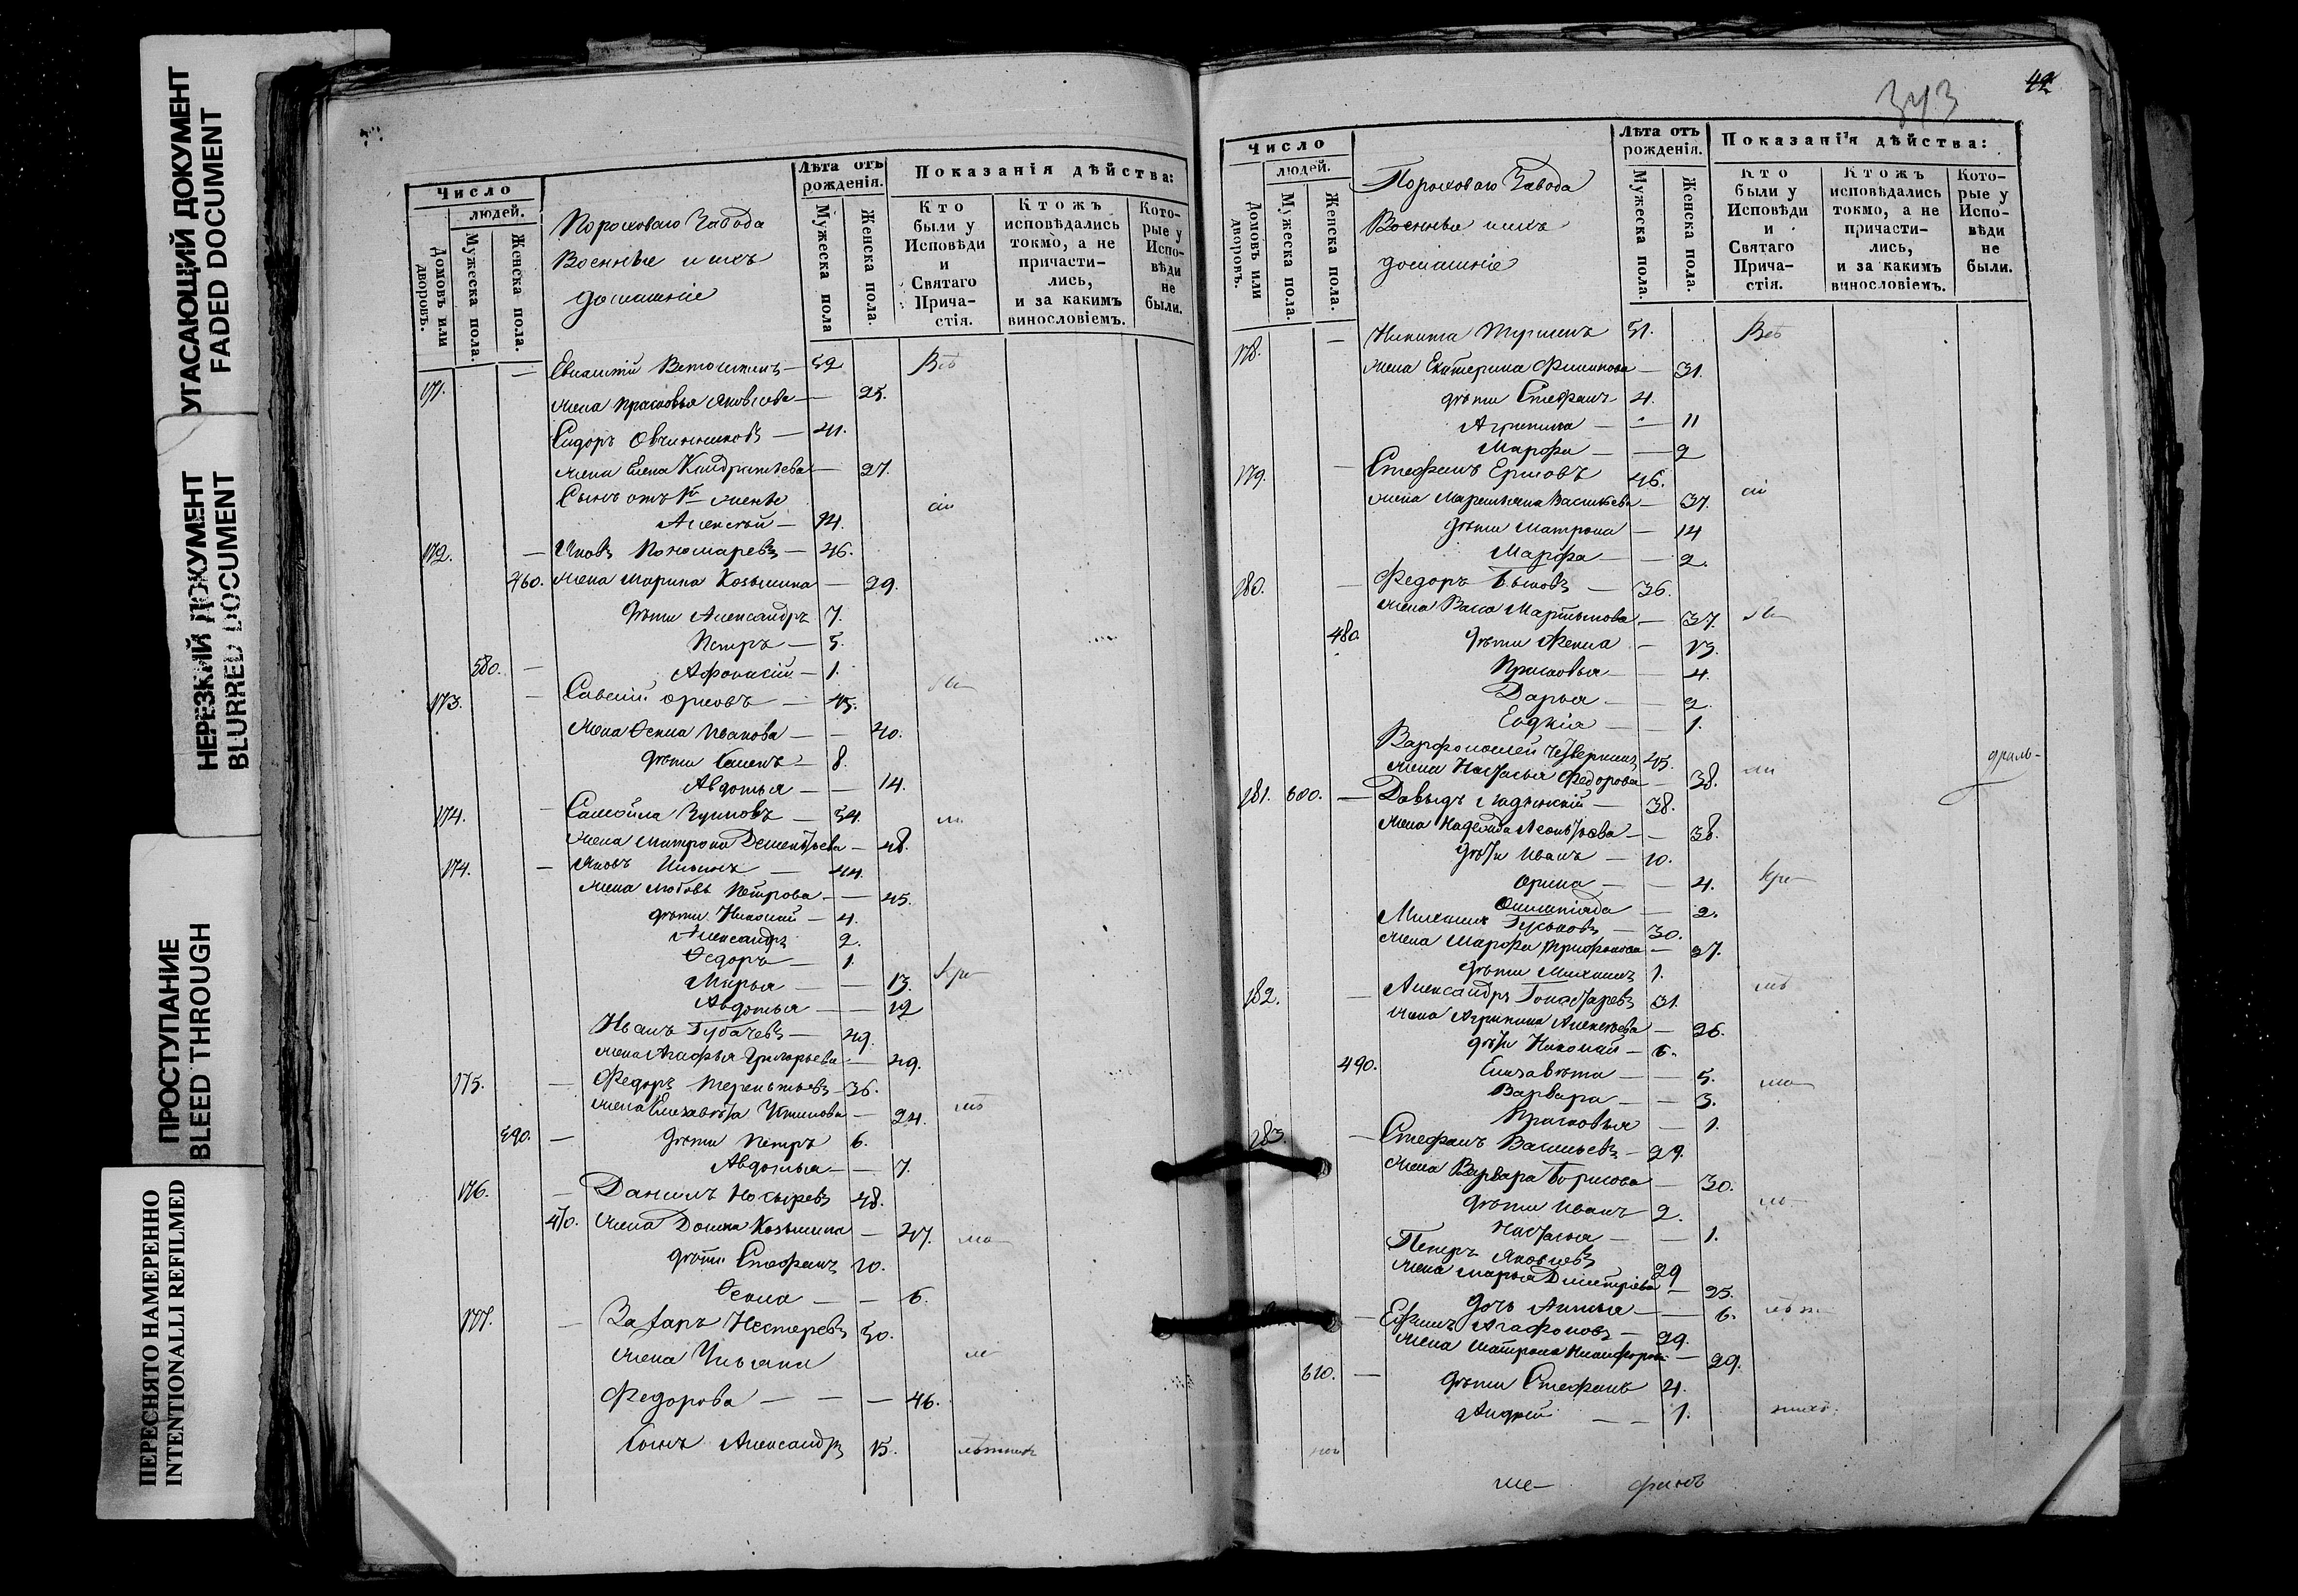 УГАСАЮЩИЙ ДОКУМЕНТ
FADED DOCUMENT
НЕРЕЗКИЙ ДОКУМЕНТ
BLURRED DOCUMENT
ПРОСТУПАНИЕ
BLEED THROUGH
ПЕРЕСНЯТО НАМЕРЕННО
INTENTIONALLI REFILMED
Число
людей.
Домовъ или дворовъ.
Мужеска пола.
Женска пола.
Пороховаго Завода
Военные и ихъ
домашніе
Лѣта отъ рожденія.
Мужеска пола
Женска пола.
Показанія дѣйства:
Кто были у Исповѣди и Святаго Причастія.
Ктожъ исповѣдались токмо, а не причастились, и за какимъ винословіемъ.
Которые у Исповѣди не были.
171. — Евпатій Ветошкинъ — 52 Всѣ
жена Прасковья Яковлева — 25.
Сидоръ Овчинниковъ — 41.
жена Елена Кандратьева — 27.
Сынъ отъ 1й жены
Алексѣй — 14.
172. — Яковъ Пономаревъ — 46.
460. жена Марина Козьмина — 29.
дѣти Александръ 7.
Петръ — 5.
580. — Афонасій — 1.
173. — Савелій Орловъ — 45.
жена Ѳекла Иванова — — 40.
дѣти Семенъ — 8.
Авдотья — — 14.
174. — Самойла — 54.
жена Матрона Дементьева — 48.
174. — Яковъ Ильинъ — 44.
жена Любовь Петрова — — 45.
дѣти Николай — 4.
Александръ 2.
Ѳедоръ — 1.
Марья — — 13.
Авдотья — — 12
Иванъ Губачевъ — 49.
жена Агафья Григорьева — 49.
175. — Федоръ Терентьевъ — 36.
жена Елизавета Устинова — 24.
590. — дѣти Петръ 6.
Авдотья — — 7.
176. — Данилъ Носыревъ 48.
470. жена Домна Козьмина — 47.
дѣти Стефанъ 10.
Ѳекла — — 6.
177. — Захаръ Нестеревъ 50.
жена Ульяна
Федорова — — — 46.
сынъ Александръ 15.
343
42
Число
людей.
Домовъ или дворовъ.
Мужеска пола.
Женска пола.
Пороховаго Завода
Военные и ихъ
домашніе
Лѣта отъ рожденія.
Мужеска пола.
Женска пола.
Показанія дѣйства:
Кто были у Исповѣди и Святаго Причастія.
Ктожъ исповѣдались токмо, а не причастились, и за какимъ винословіемъ.
Которые у Исповѣди не были.
178. — Никита 51. Всѣ
жена Екатерина Филипова — 31.
дѣти Стефанъ 4.
Агрипина — — 11
Марфа — — 2
179. — Стефанъ Ершовъ 46.
жена Маремьяна Васильева — 37.
дѣти Матрона — 14
Марфа — — 2.
180. — Федоръ Быковъ — 36.
жена Васса Мартынова — 37.
480. дѣти Ѳекла — 13.
Прасковья — — 4.
Дарья — — 2.
Евдкія — — 1.
Варфоломей Четверкинъ 45.
жена Настасья Федорова — 38.
181. 600. — Давыдъ — 38.
жена Надежда Леонтьева — — 38.
дѣти Иванъ — 10.
Орина — — 4.
Олимпіада — 2.
Михаилъ Гуськовъ — 30.
жена Марфа Трифонова — 27.
дѣти Михаилъ 1.
182. — Александръ Гонастаревъ 31.
жена Агрипина Алексѣева — 26.
дѣти Николай — 6.
490. Елизавета — — 5.
Варвара — — 3.
Прасковья — 1.
183. — Стефанъ Васильевъ — 29.
жена Варвара Борисова — 30.
дѣти Иванъ 2.
Настасья — — 1.
Петръ Яковлевъ 29
жена Марья Дмитріева — 25.
дочь — — 6.
— Ефимъ Агафоновъ — 29.
жена Матрона — 29.
610. — дѣти Стефанъ 4.
Андрей — — 1.